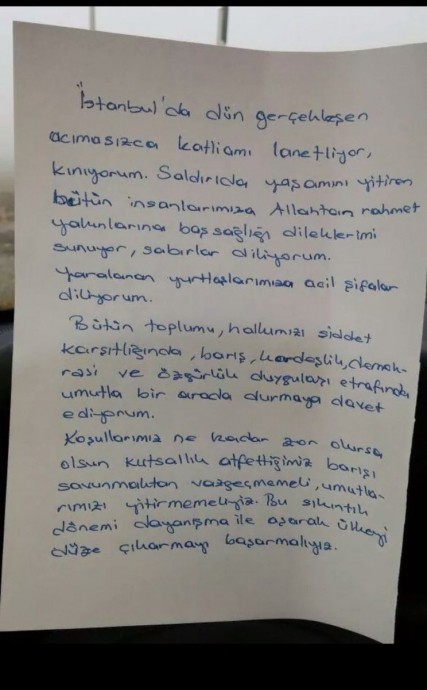 İstanbul'da dün gerçekleşen
acımasızca katliamı lanetliyor,
kınıyorum. Saldırıda yaşamını yitiren
bütün insanlarımıza Allahtan rahmet
yakınlarına başsağlığı dileklerimi
sunuyor, sabırlar diliyorum.
Yaralanan yurttaşlarımıza acil şifalar
diliyorum.
Bütün toplumu, halkımızı şiddet
karşıtlığında, barış, kardeşlik, demok-
rasi ve özgürlük duyguları etrafında
umutla bir arada durmaya davet
ediyorum.
Koşullarımız ne kadar zor olursa
olsun kutsallık atfettiğimiz barışı
savunmaktan vazgeçmemeli, umutla-
rımızı yitirmemeliyiz. Bu sıkıntılı
dönemi dayanışma ile aşarak ülkeyi
düze çıkarmayı başarmalıyız.